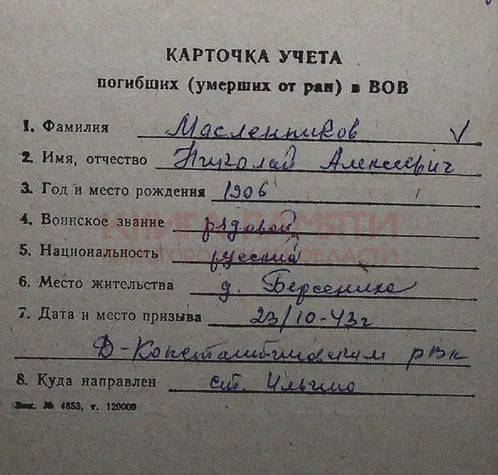 КАРТОЧКА УЧЕТА
погибших (умерших от ран) в ВОВ
1. Фамилия Масленников V
2. Имя, отчество Николай Алексеевич
3. Год и место рождения 1906
4. Воинское звание рядовой
КНИГА ПАМЯТИ
НИЖЕГОРОДСКОЙ ОБЛАСТИ
5. Национальность русский
6. Место жительства д. Берсениха
7. Дата и место призыва 23/10-43г
Д-Константиновским рвк
8. Куда направлен ст. Ильино
Зак. № 4853, т. 120000